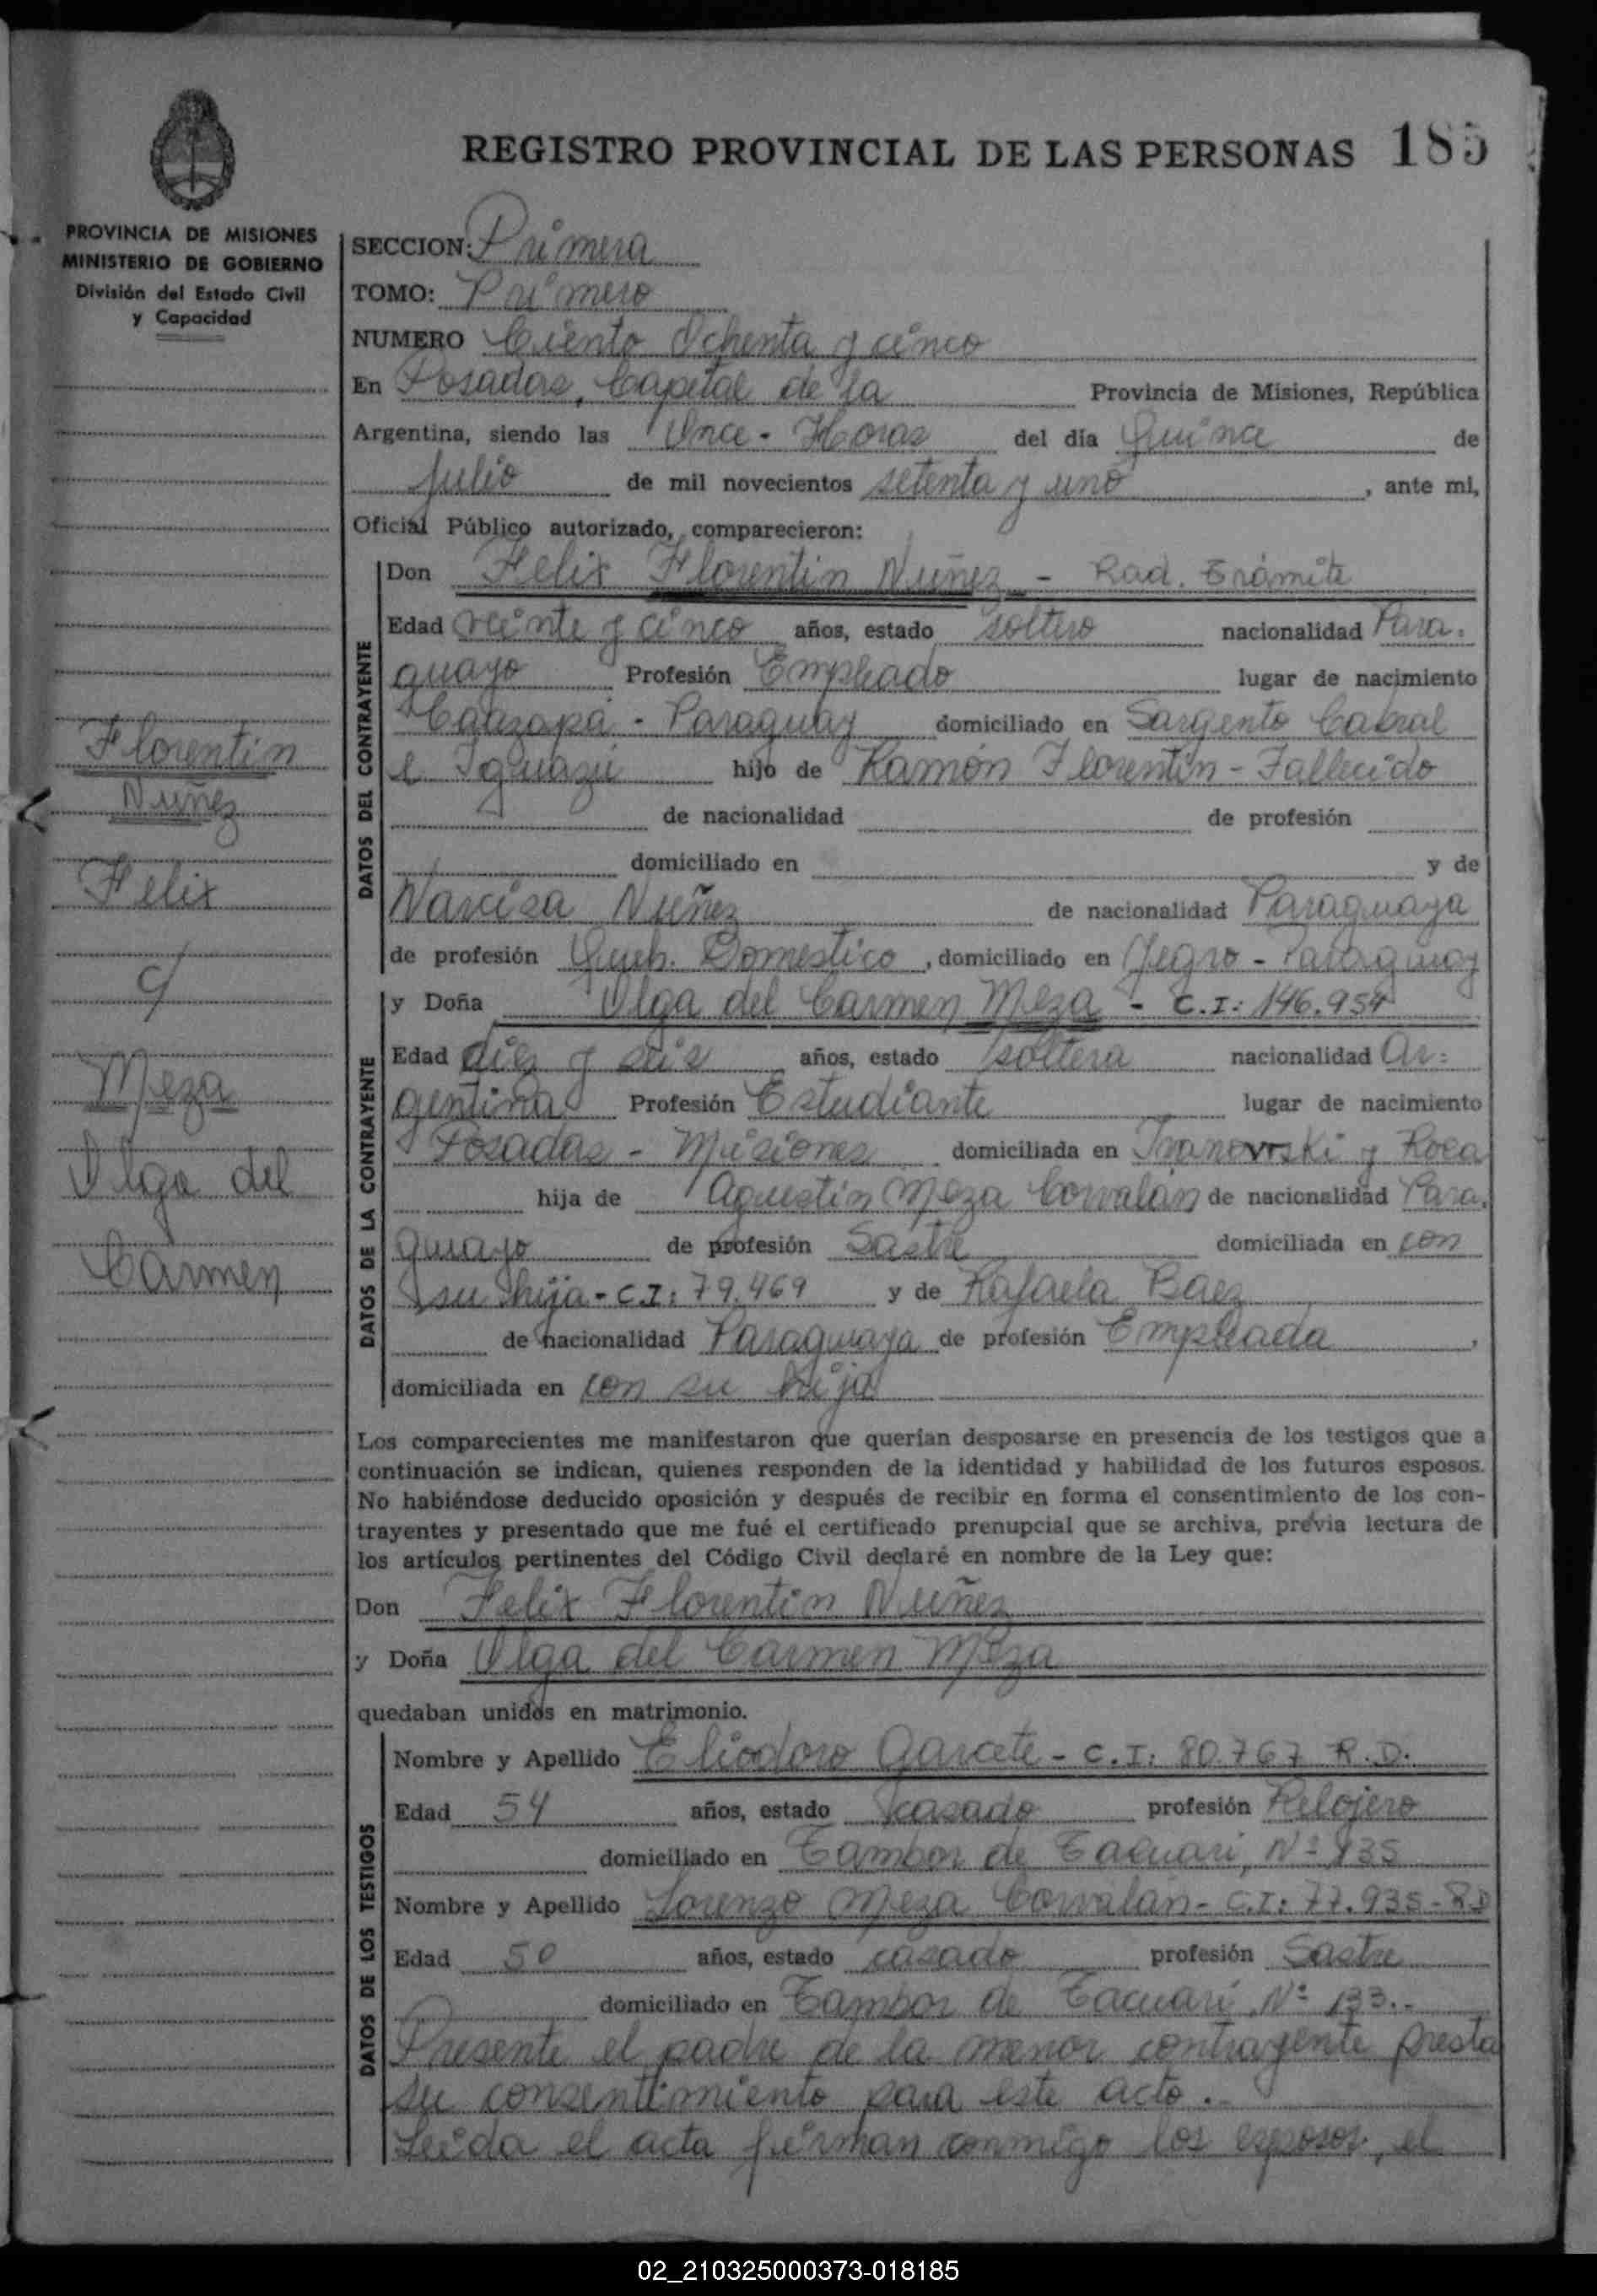 REGISTRO PROVINCIAL DE LAS PERSONAS 185
PROVINCIA DE MISIONES
MINISTERIO DE GOBIERNO
División del Estado Civil
y Capacidad
SECCION: Primera
TOMO: Primero
NUMERO Ciento Ochenta y cinco
En Posadas, Capital de la Provincia de Misiones, República
Argentina, siendo las Once - Horas del día Quince de
Julio de mil novecientos setenta y uno, ante mí,
Oficial Público autorizado, comparecieron:
DATOS DEL CONTRAYENTE
Don Felix Florentin Nuñez - Rad. Trámite
Edad veinte y cinco años, estado soltero nacionalidad Para=
guayo Profesión Empleado lugar de nacimiento
Caazapá - Paraguay domiciliado en Sargento Cabral
e Iguazú hijo de Ramón Florentín - Fallecido
de nacionalidad de profesión
domiciliado en y de
Narcisa Nuñez de nacionalidad Paraguaya
de profesión Queh. Domestico, domiciliado en Yegro - Paraguay
Florentin
Nuñez
Felix
c/
Meza
Olga del
Carmen
DATOS DE LA CONTRAYENTE
y Doña Olga del Carmen Meza - C.I: 146.954
Edad diez y seis años, estado soltera nacionalidad Ar=
gentina Profesión Estudiante lugar de nacimiento
Posadas - Misiones domiciliada en Ivanowski y Roca
hija de Agustín Meza Corvalán de nacionalidad Para=
guayo de profesión Sastre domiciliada en con
su hija - C.I: 79.469 y de Rafaela Baez
de nacionalidad Paraguaya de profesión Empleada,
domiciliada en con su hija
Los comparecientes me manifestaron que querían desposarse en presencia de los testigos que a
continuación se indican, quienes responden de la identidad y habilidad de los futuros esposos.
No habiéndose deducido oposición y después de recibir en forma el consentimiento de los con-
trayentes y presentado que me fué el certificado prenupcial que se archiva, previa lectura de
los artículos pertinentes del Código Civil declaré en nombre de la Ley que:
Don Felix Florentin Nuñez
y Doña Olga del Carmen Meza
quedaban unidos en matrimonio.
DATOS DE LOS TESTIGOS
Nombre y Apellido Eliodoro Garcete - C.I: 80.767 R.D.
Edad 54 años, estado casado profesión Relojero
domiciliado en Tambor de Tacuari, Nº 135
Nombre y Apellido Lorenzo Meza Corvalán - C.I: 77.935 - RD
Edad 50 años, estado casado profesión Sastre
domiciliado en Tambor de Tacuarí Nº 133.-
Presente el padre de la menor contrayente presta
su consentimiento para este acto.-
Leída el acta firman conmigo los esposos, el
02_210325000373-018185